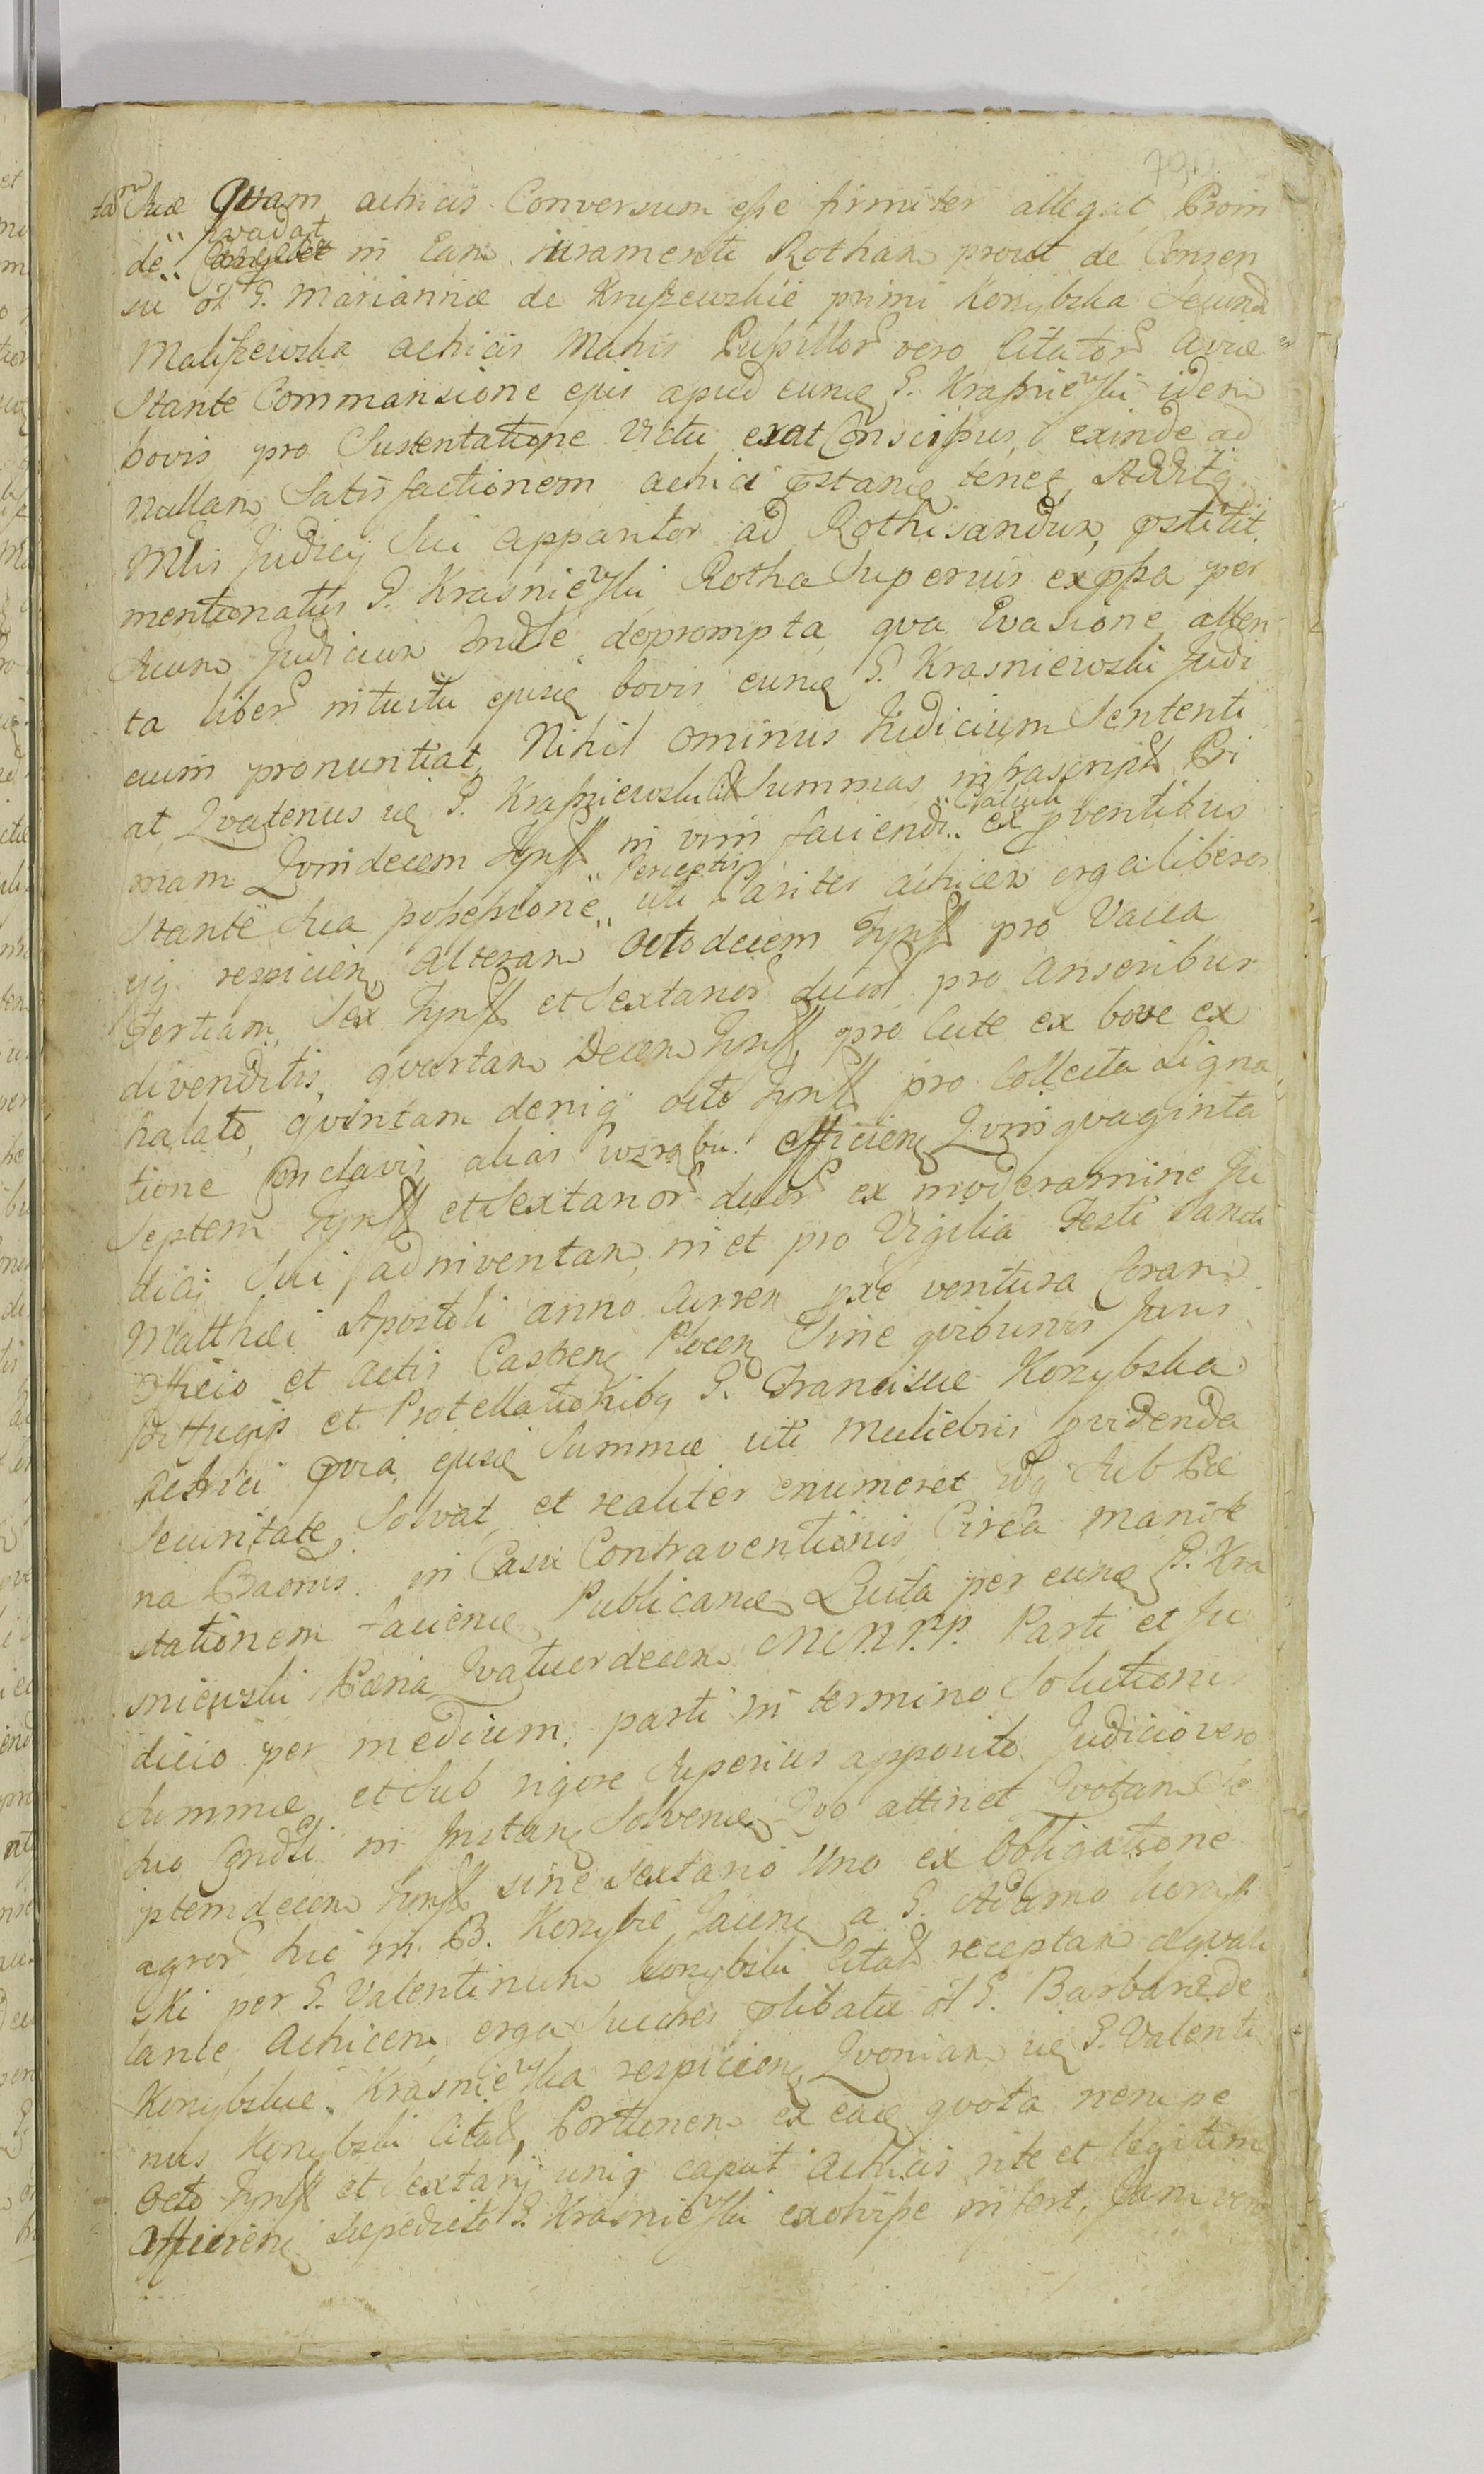 794
tam Suae Quam actricis Conversum esse firmiter allegat, Proin
de " Evadat in Eand. iuramenti Rotham prout de Consen
su ol G. Mariannae de Kruszewskie primi Korzybska Secund
Maliszewska actricis Matris Pupillor vero Citator Aviae
Stante Commansione ejus apud eund G. Krasniewski idem
bovis pro Sustentatione Victu erat Conscissus, exinde ad
Nullam Satisfactionem actrici pstand tenet, Additq
Mtlis Judicij Sui apparitor ad Rothisandum, pstitit
mentionatus G. Krasniewski Rotha Superius expssa per
Suum Judicium Indte deprompta, qva Evasione atten
ta liber intuitu ejusd bovis eund G. Krasniewski Judi
cium pronuntiat, Nihil ominus Judicium Sententi
at Qvatenus id G. Krasniewski Citat Summas infrascript Pri
mam Qvindecem Tynff in vim faciendi " Calculi ex pventibus
Stante Sua possessione " Perceptis uti Pariter actricem erga liberos
ejq respicien, alteram Octodecem Tynff pro Vacca
tertiam, Sex Tynff et Sextanor duor pro Anseribus
divenditis, qvartam Decem Tynff, pro Cute ex bove ex
halato, qvintam deniq octo Tynff pro Collecta Ligna
tione Conclavis alias efficien Qvinqvaginta
Septem Tynff et Sextanor duor ex moderamine Ju
dicij Sui adinventam, in et pro Vigilia Festi Sancti
Matthaei Apostoli anno Curren pxe ventura Coram
Officio et Actis Castren Plocen Sine qvibusvis Juris
Suffugijs et Protellationibq G. Franciscae Korzybska
actrici qvia ejusd Summae uti Muliebris pvidenda
Securitate, Solvat et realiter enumeret idq Sub Poe
na Baonis in Casu Contraventionis Circa Manife
stationem faciend Publicand Luita per eund G. Kra
sniewski Poena Qvatuordecem M.M.P.P. Parti et Ju
dicio per medium, parti in termino Solutioni
Summae et Sub rigore Superius apposito Judicio vero
Suo Cmdsi in Instan Solvend, Qvo attinet Qvotam Se
ptemdecem Tynff sine Sextano Uno ex Obligatione
agror hic in B. Korzybie Jacen a G. Adamo Korzyb
ski per G. Valentinum Korzybski Citat receptam aeqvali
lance Actricem erga Succres plibatae ol G. Barbarae de
Korzybskie Krasniewska respicien, Qvoniam id G. Valenti
nus Korzybski Citat, Portionem ex ead qvota nempe
Octo Tynff et Sextanj uniq caput Actricis rite et legitime
Afficien Saepedicto G. Krasniewski exolvisse infert, Jam vero